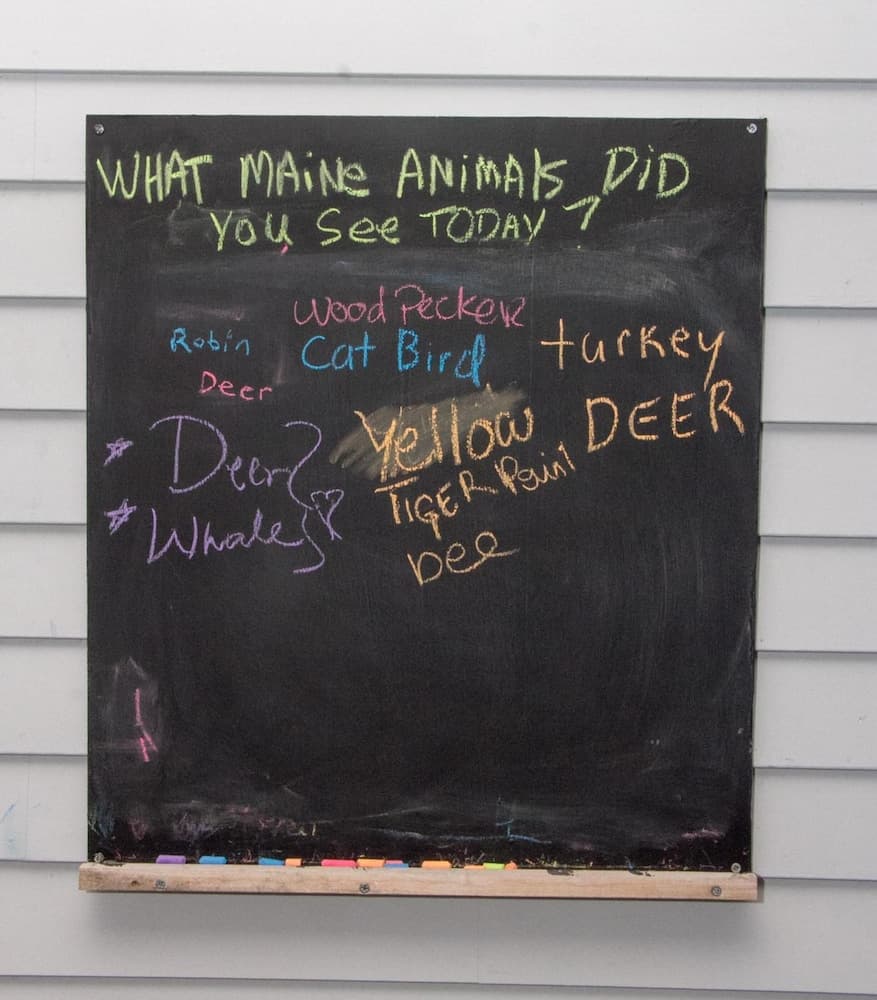 WHAT MAiNe ANiMAlS DiD
YOU See TODAY ?
Wood Pecker
Robin
Cat Bird
turkey
Deer
DEER
* Deer
Yellow
TIGER
* Whale
Dee